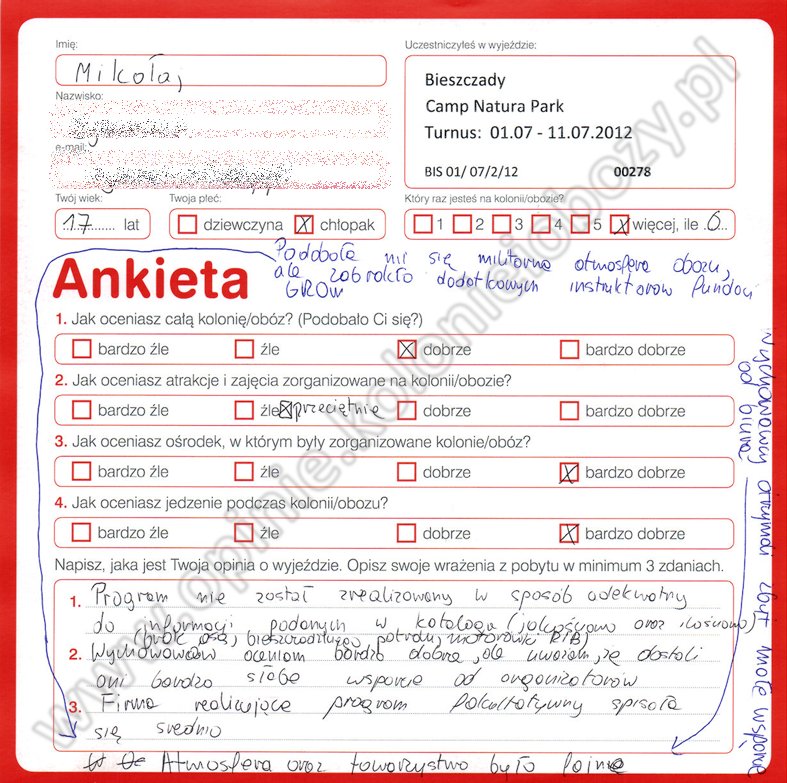 Imię:
Mikołaj
Nazwisko:
e-mail:
Twój wiek:
17 lat
Twoja płeć:
dziewczyna chłopak
Uczestniczyłeś w wyjeździe:
Bieszczady
Camp Natura Park
Turnus: 01.07 - 11.07.2012
BIS 01/ 07/2/12 00278
Który raz jesteś na kolonii/obozie?
1 2 3 4 5 więcej, ile 6
Podobała mi się militarna atmosfera obozu,
ale zabrakło dodatkowych instruktorów Fundacji
GROM
Ankieta
1. Jak oceniasz całą kolonię/obóz? (Podobało Ci się?)
bardzo źle źle dobrze bardzo dobrze
2. Jak oceniasz atrakcje i zajęcia zorganizowane na kolonii/obozie?
bardzo źle źle przeciętnie dobrze bardzo dobrze
3. Jak oceniasz ośrodek, w którym były zorganizowane kolonie/obóz?
bardzo źle źle dobrze bardzo dobrze
4. Jak oceniasz jedzenie podczas kolonii/obozu?
bardzo źle źle dobrze bardzo dobrze
Napisz, jaka jest Twoja opinia o wyjeździe. Opisz swoje wrażenia z pobytu w minimum 3 zdaniach.
1. Program nie został zrealizowany w sposób adekwatny
do informacji podanych w katalogu (jakościowo oraz ilościowo)
(brak patrolu, motorówki RIB)
2. Wychowawców oceniam bardzo dobrze, ale uważam, że dostali
oni bardzo słabe wsparcie od organizatorów
3. Firma realizująca program fakultatywny spisała
się średnio
Atmosfera oraz towarzystwo było fajne
Wychowawcy otrzymali zbyt małe wsparcie
od biura
www.opinie.kolonieiobozy.pl